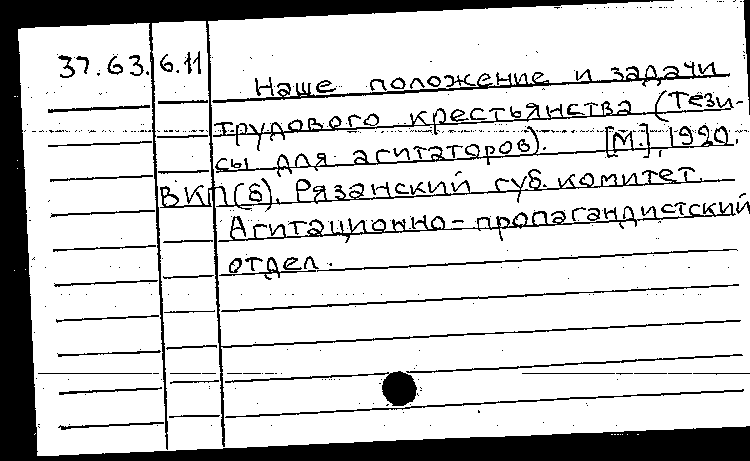 37.63.6.11
Наше положение и задачи
трудового крестьянства (Тези-
сы для агитаторов). [М.], 1920.
ВКП(б). Рязанский губ. комитет.
Агитационно-пропагандистский
отдел.